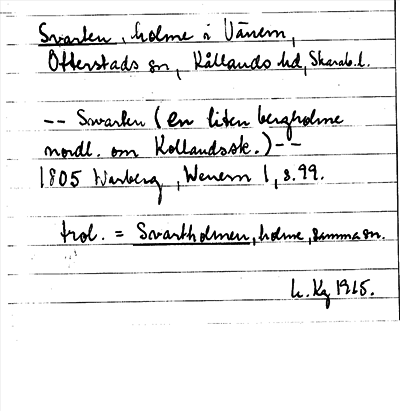 Svarten, holme i Vänern,
Otterstads sn, Kållands hd, Skarab. l.
-- Svarten (en liten bergholme
nordl. om Kollandsö sk.) --
1805 Warberg, Wenern 1, s. 99.
trol. = Svartholmen, holme, samma sn.
1915.